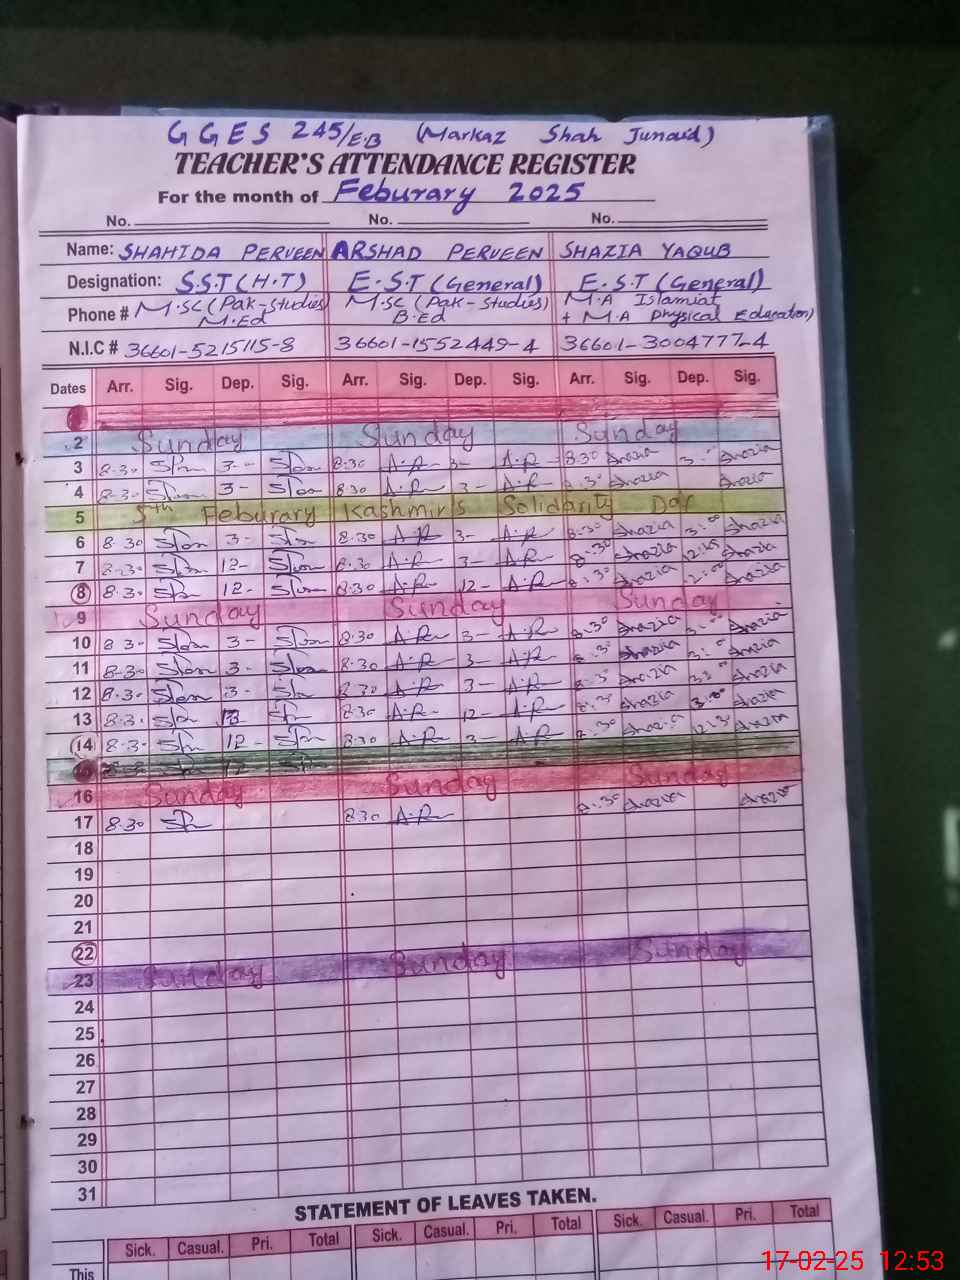 GGES 245/E.B (Markaz Shah Junaid)
TEACHER'S ATTENDANCE REGISTER
For the month of Feburary 2025
No. No. No.
Name: SHAHIDA PERVEEN ARSHAD PERVEEN SHAZIA YAQUB
Designation: S.S.T (H.T) E.S.T (General) E.S.T (General)
Phone # M.SC (Pak-Studies) M.Ed M.SC (Pak-Studies) B.Ed M.A Islamiat + M.A Physical Education)
N.I.C # 36601-5215115-8 36601-1552449-4 36601-3004777-4
Dates Arr. Sig. Dep. Sig. Arr. Sig. Dep. Sig. Arr. Sig. Dep. Sig.
2 Sunday Sunday Sunday
3 8-30 3- 8:30 A.R 3- A.R 8.30 Shazia 3:00 Shazia
4 8-30 3- 8:30 A.R 3- A.R 8:30 Shazia Shazia
5 5th Feburary Kashmir's Solidarity Day
6 8-30 3- 8:30 A.R 3- A.R 8:30 Shazia 3:00 Shazia
7 8-30 12- 8:30 A.R 3- A.R 8:30 Shazia Shazia
8 8-30 12- 8:30 A.R 12- A.R 8:30 Shazia 12:00 Shazia
9 Sunday Sunday Sunday
10 8-30 3- 8:30 A.R 3- A.R 8:30 Shazia 3:00 Shazia
11 8-30 3- 8:30 A.R 3- A.R 8:30 Shazia 3:00 Shazia
12 8-30 3- 8:30 A.R 3- A.R 8:30 Shazia Shazia
13 8-30 8:30 A.R 12- A.R 8:30 Shazia 3:00 Shazia
14 8-30 12- 8:30 A.R 3- A.R 8:30 Shazia 12:30 Shazia
16 Sunday Sunday Sunday
17 8-30 8:30 A.R 8:30 Shazia Shazia
18
19
20
21
22
23 Sunday Sunday Sunday
24
25
26
27
28
29
30
31
STATEMENT OF LEAVES TAKEN.
Sick. Casual. Pri. Total Sick. Casual. Pri. Total Sick. Casual. Pri. Total
This
17-02-25 12:53